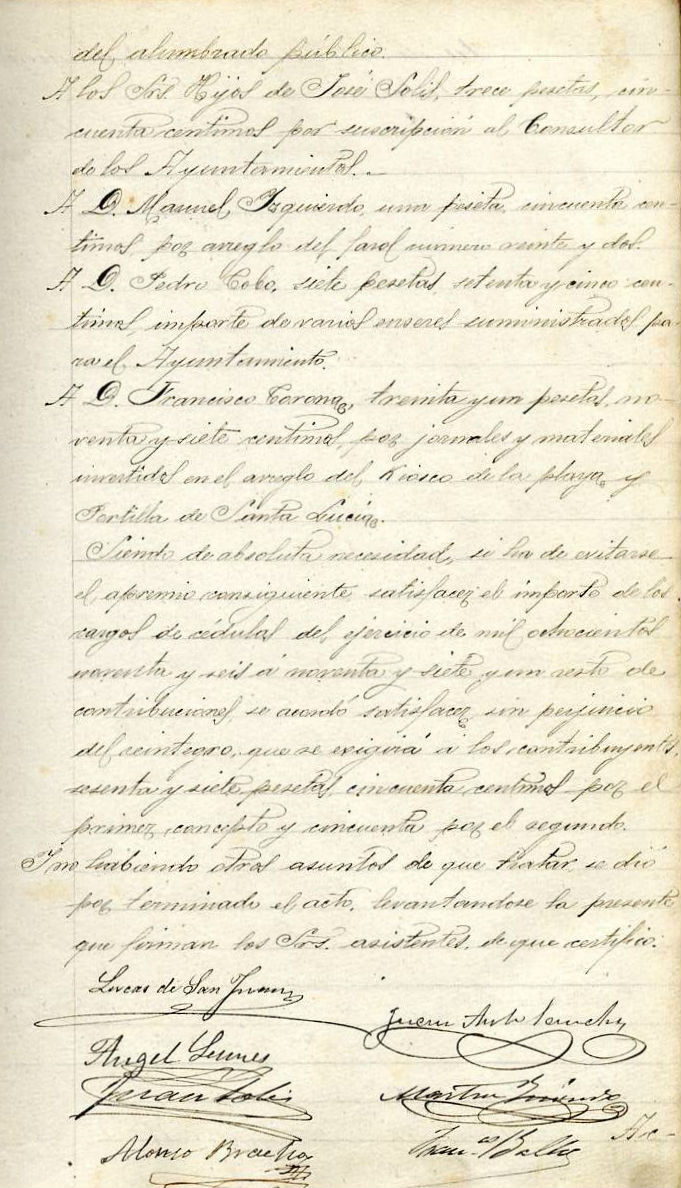 del alumbrado público.
A los Srs. Hijos de José Solis, trece pesetas, cin-
cuenta centimos por suscripción al Consultor
de los Ayuntamientos.
A D. Manuel Izquierdo, una peseta, cincuenta cen-
timos, por arreglo del farol número veinte y dos.
A D. Pedro Cobo, siete pesetas setenta y cinco cen-
timos, importe de varios enseres suministrados pa-
ra el Ayuntamiento.
A D. Francisco Corona, treinta y un pesetas, no-
venta y siete centimos, por jornales y materiales
invertidos en el arreglo del Kiosco de la playa y
Portilla de Santa Lucia.
Siendo de absoluta necesidad, si ha de evitarse
el apremio consiguiente satisfacer el importe de los
cargos de cédulas del ejercicio de mil ochocientos
noventa y seis á noventa y siete y un resto de
contribuciones, se acordó satisfacer, sin perjuicio
del reintegro, que se exigirá á los contribuyentes,
sesenta y siete pesetas, cincuenta centimos por el
primer concepto y cincuenta por el segundo.
Y no habiendo otros asuntos de que tratar, se dió
por terminado el acto, levantandose la presente
que firman los Srs. asistentes, de que certifico.
Lucas de San Juan
Juan Ant.
Angel
Juan Solis
Martin
Alonso
Fran.co
Ac-